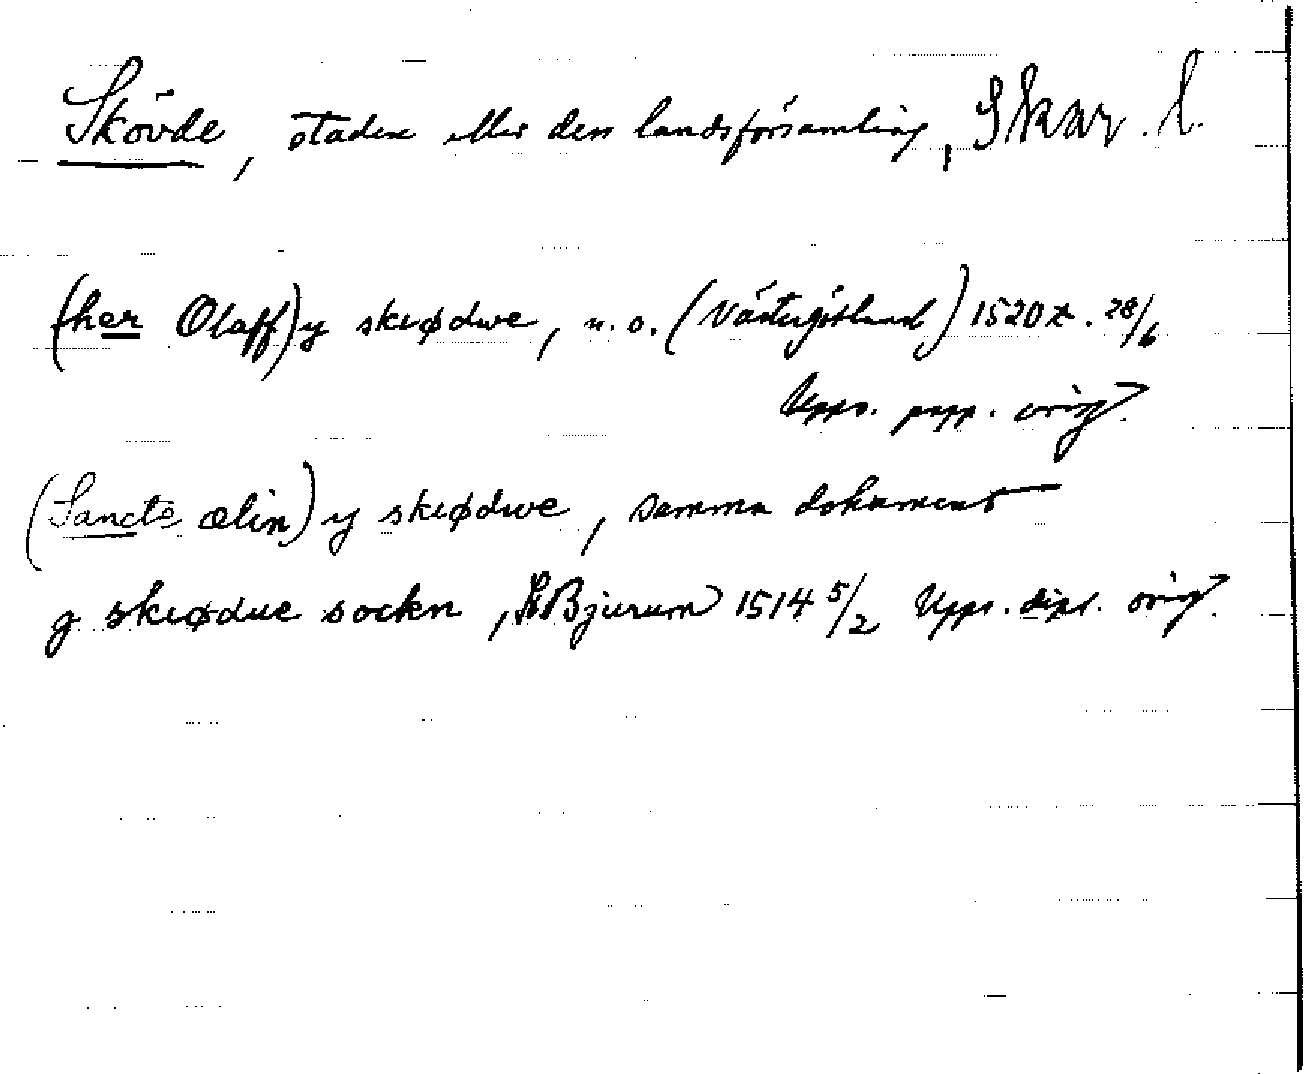 Skövde, staden eller dess landsförsamling, Skar. l.
(her Olaff) y skiødwe, u. o. (Västergötland) 1520 28/6
Upps. papp. orig.
(Sancte ælin) y skiødwe, samma dokument
y skiødue sockn, Bjurum 1514 5/2 Upps. dipl. orig.